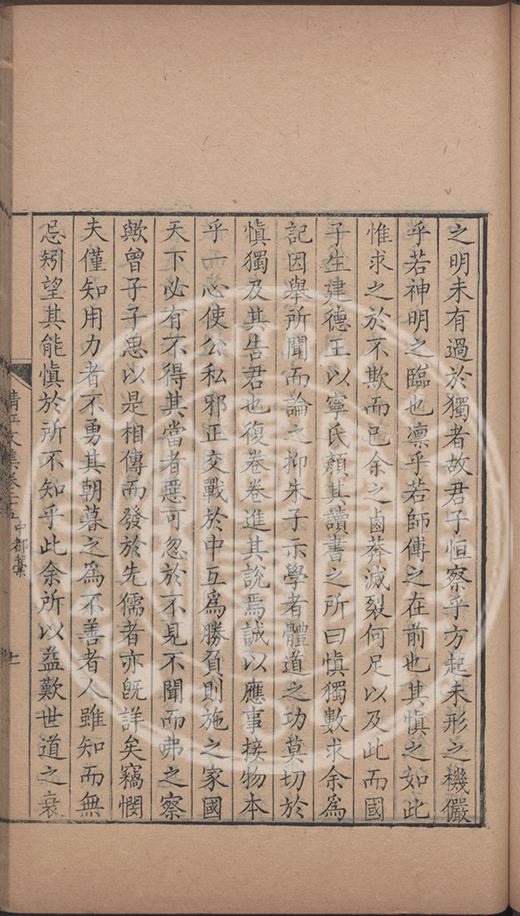 之明未有過於獨者故君子恒察乎方起未形之機儼
乎若神明之臨也凛乎若師傅之在前也其慎之如此
惟求之於不欺而已余之鹵莽滅裂何足以及此而國
子生建德王以寧氏顏其讀書之所曰慎獨數求余為
記因舉所聞而論之抑朱子示學者體道之功莫切於
慎獨及其告君也復卷卷進其說焉誠以應事接物本
乎一心使公私邪正交戰於中互為勝負則施之家國
天下必有不得其當者惡可忽於不見不聞而弗之察
歟曾子子思以是相傳而發於先儒者亦旣詳矣竊憫
夫僅知用力者不勇其朝暮之為不善者人雖知而無
忌矧望其能慎於所不知乎此余所以益歎世道之衰
清江文集卷二十五 中都藁
十一